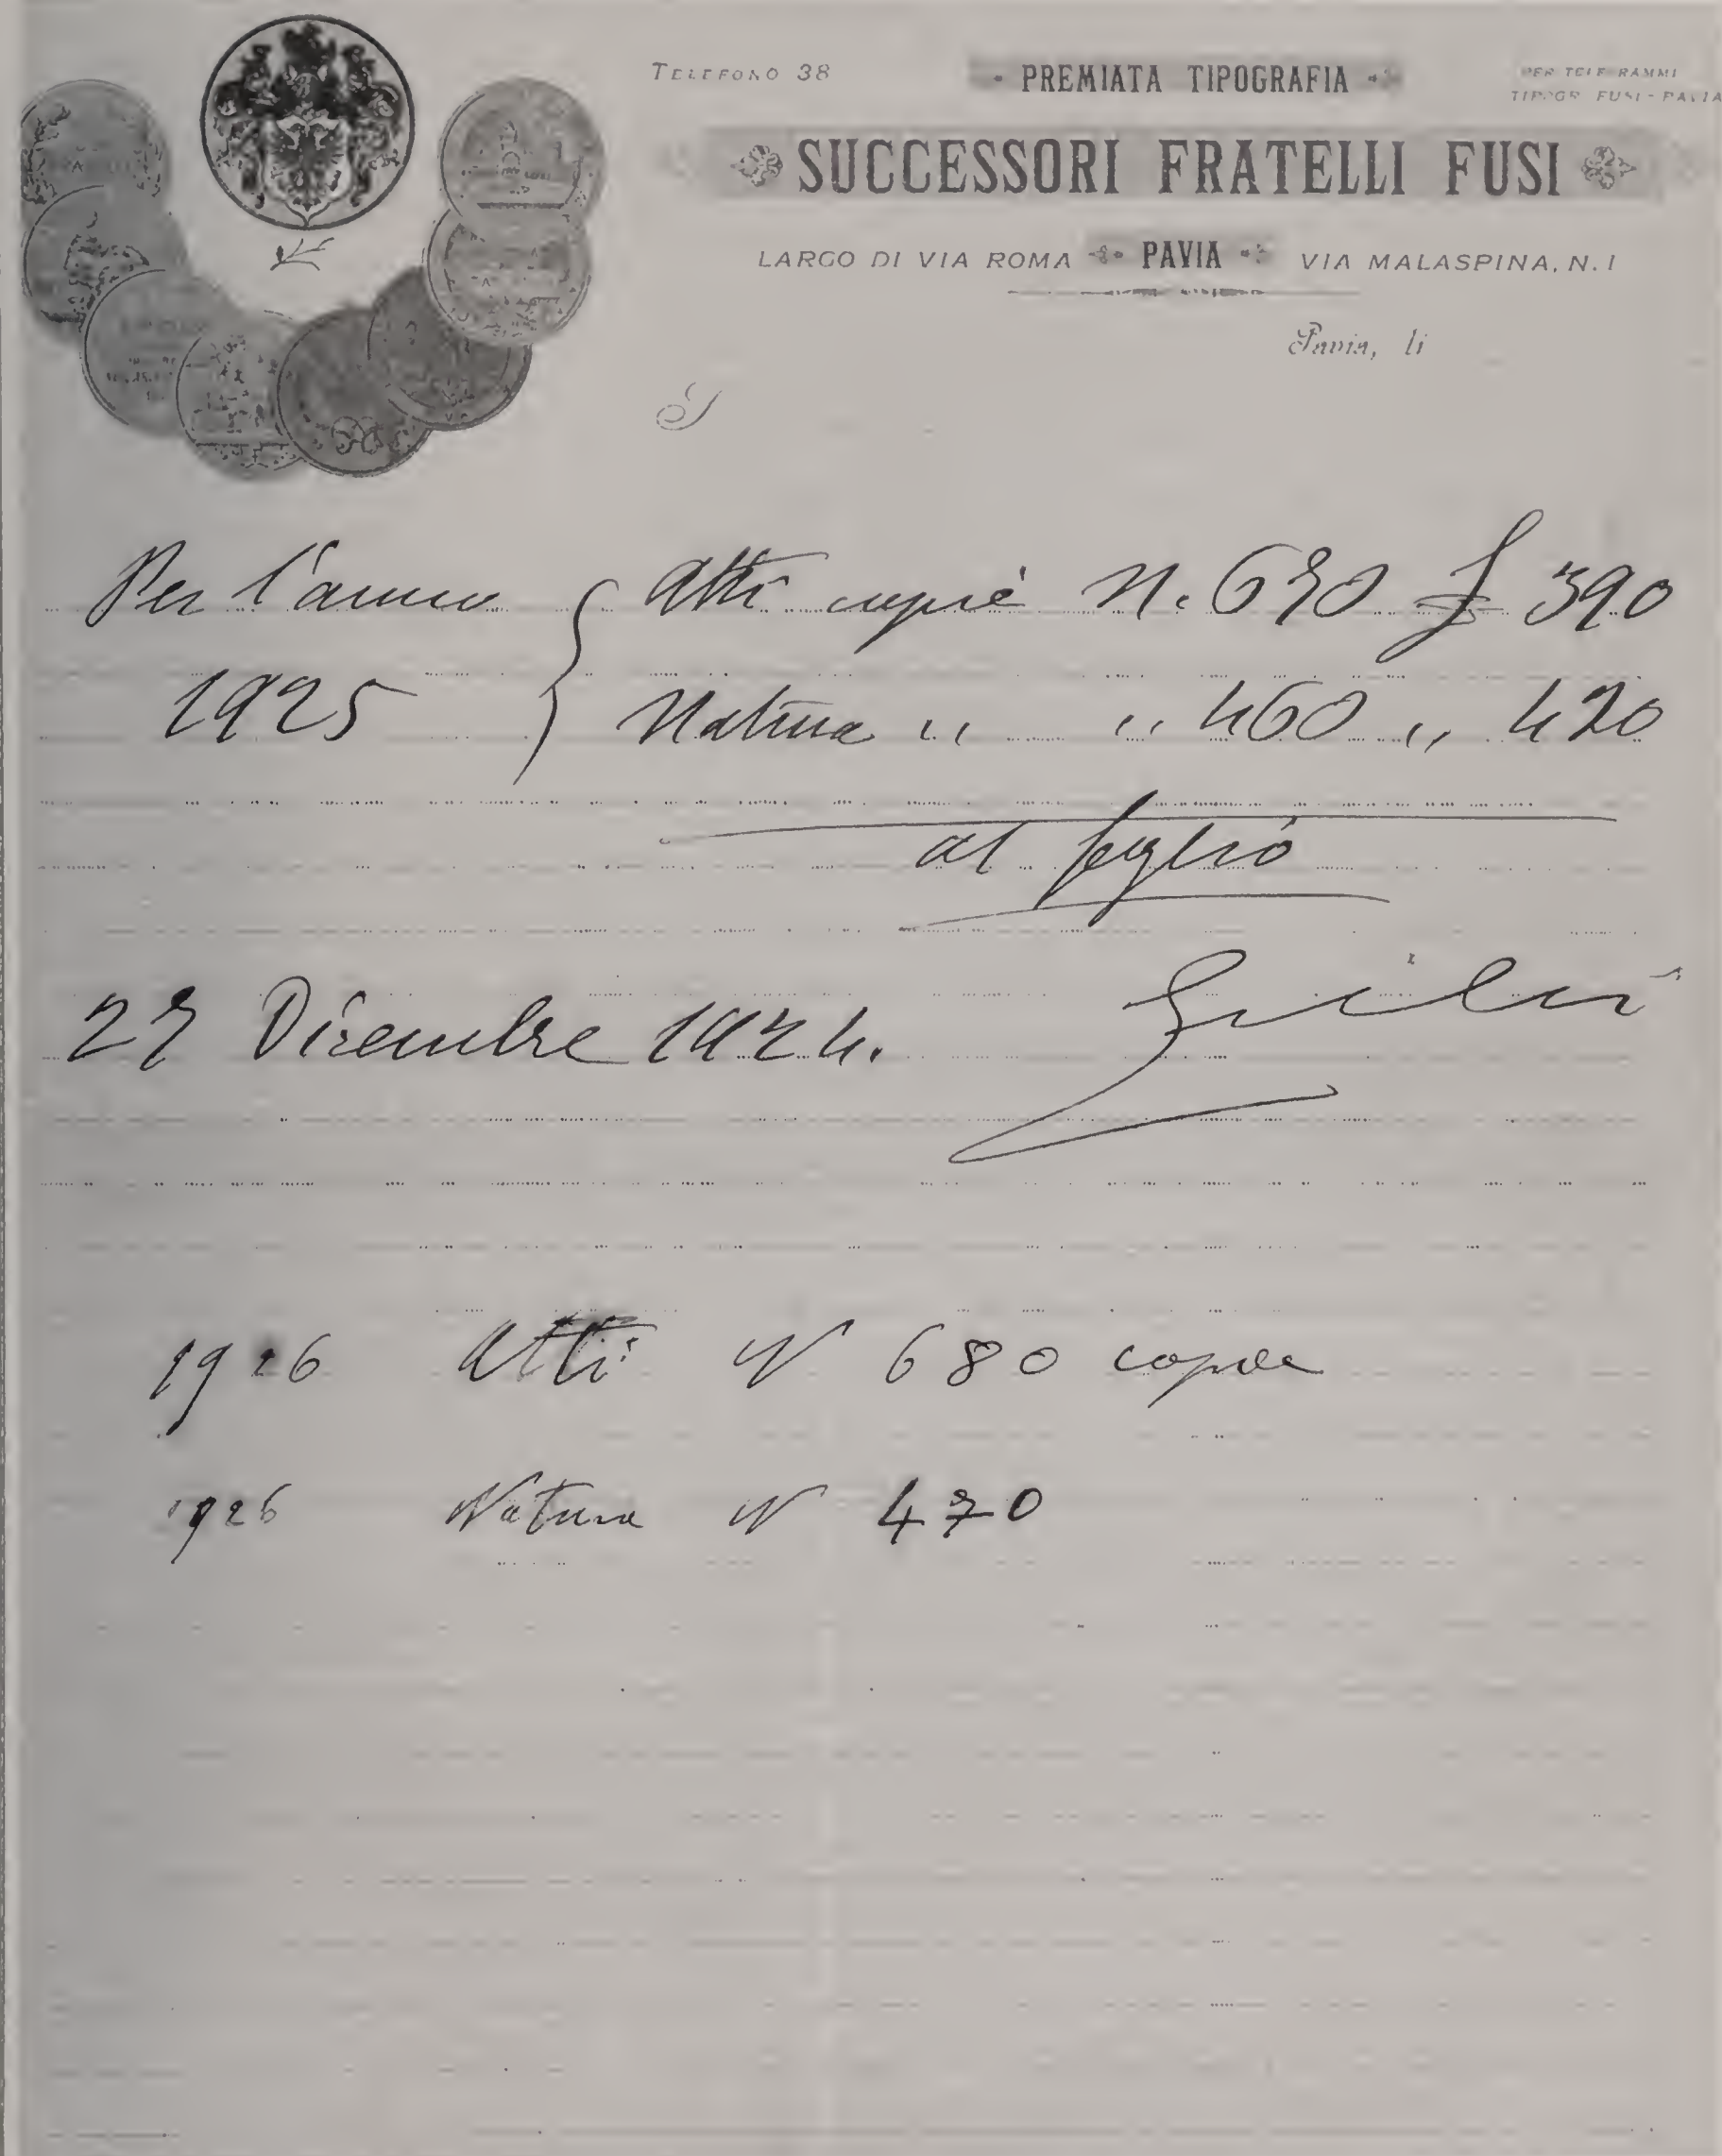 TELEFONO 38
PREMIATA TIPOGRAFIA
PER TELEGRAMMI
TIPOGR. FUSI - PAVIA
SUCCESSORI FRATELLI FUSI
LARGO DI VIA ROMA PAVIA VIA MALASPINA, N. 1
Pavia, li
S
Per l'anno Atti copie N. 670 £ 390
1925 Natura " " 460 " 420
al foglio
27 Dicembre 1924.
1926 Atti N 680 copie
1926 Natura N 470